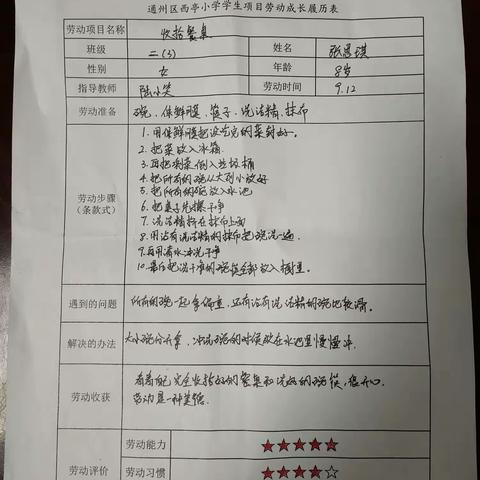 通州区西亭小学学生项目劳动成长履历表
劳动项目名称 收拾餐桌
班级 二(3) 姓名 张思琪
性别 女 年龄 8岁
指导教师 陆小笑 劳动时间 9.12
劳动准备 碗、保鲜膜、筷子、洗洁精、抹布
劳动步骤
(条款式)
1.用保鲜膜把没吃完的菜封好。
2.把菜放入冰箱
3.再把剩菜倒入垃圾桶
4.把所有的碗从大到小放好
5.把所有的碗放入水池
6.把桌子先擦干净
7.洗洁精挤在抹布上面
8.用沾有洗洁精的抹布把碗洗一遍
9.再用清水冲洗干净
10.最后把洗干净的碗筷全部放入橱里。
遇到的问题 所有的碗一起拿偏重，还有沾有洗洁精的碗比较滑。
解决的办法 大小碗分开拿，冲洗碗的时候放在水池里慢慢冲.
劳动收获 看着自己完全收拾好的餐桌和洗好的碗筷，很开心.
劳动是一种美德.
劳动评价
劳动能力 ★★★★★
劳动习惯 ★★★★☆